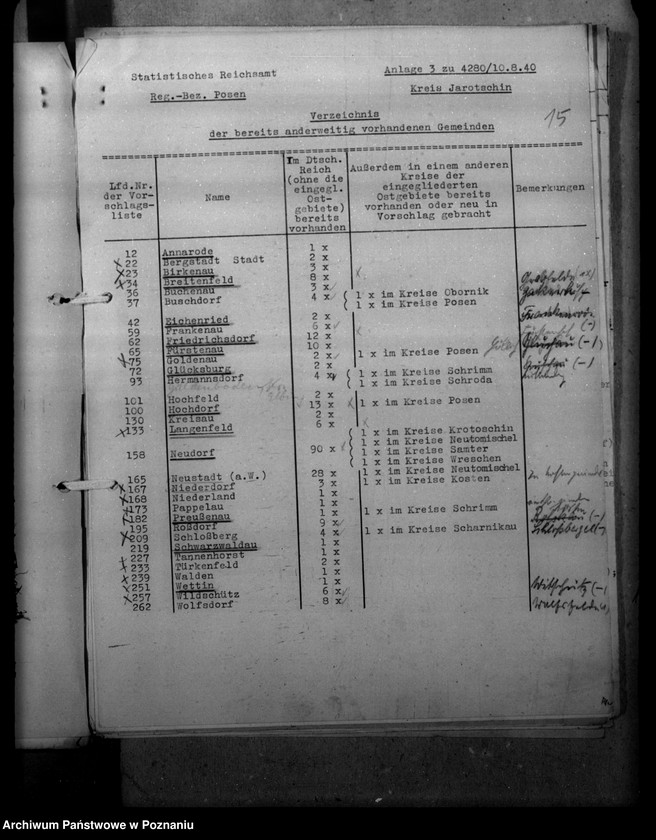 Statistisches Reichsamt
Anlage 3 zu 4280/10.8.40
Reg.-Bez. Posen
Kreis Jarotschin
15
Verzeichnis
der bereits anderweitig vorhandenen Gemeinden
Lfd.Nr. der Vorschlagsliste
Name
Im Dtsch. Reich (ohne die eingegl. Ostgebiete) bereits vorhanden
Außerdem in einem anderen Kreise der eingegliederten Ostgebiete bereits vorhanden oder neu in Vorschlag gebracht
Bemerkungen
12 Annarode 1 x
22 Bergstadt Stadt 2 x
23 Birkenau 3 x
34 Breitenfeld 8 x
36 Buchenau 3 x
37 Buschdorf 4 x ( 1 x im Kreise Obornik
( 1 x im Kreise Posen
42 Eichenried 2 x
59 Frankenau 6 x
62 Friedrichsdorf 12 x
65 Fürstenau 10 x
75 Goldenau 2 x 1 x im Kreise Posen
72 Glücksburg 2 x
93 Hermannsdorf 4 x ( 1 x im Kreise Schrimm
( 1 x im Kreise Schroda
101 Hochfeld 2 x
100 Hochdorf 13 x 1 x im Kreise Posen
130 Kreisau 2 x
133 Langenfeld 6 x
158 Neudorf 90 x ( 1 x im Kreise Krotoschin
( 1 x im Kreise Neutomischel
( 1 x im Kreise Samter
( 1 x im Kreise Wreschen
165 Neustadt (a.W.) 28 x 1 x im Kreise Neutomischel
167 Niederdorf 3 x 1 x im Kreise Kosten
168 Niederland 1 x
173 Pappelau 1 x
182 Preußenau 1 x 1 x im Kreise Schrimm
195 Roßdorf 9 x
209 Schloßberg 4 x 1 x im Kreise Scharnikau
219 Schwarzwaldau 1 x
227 Tannenhorst 1 x
233 Türkenfeld 2 x
239 Walden 1 x
251 Wettin 1 x
257 Wildschütz 6 x
262 Wolfsdorf 8 x
Archiwum Państwowe w Poznaniu